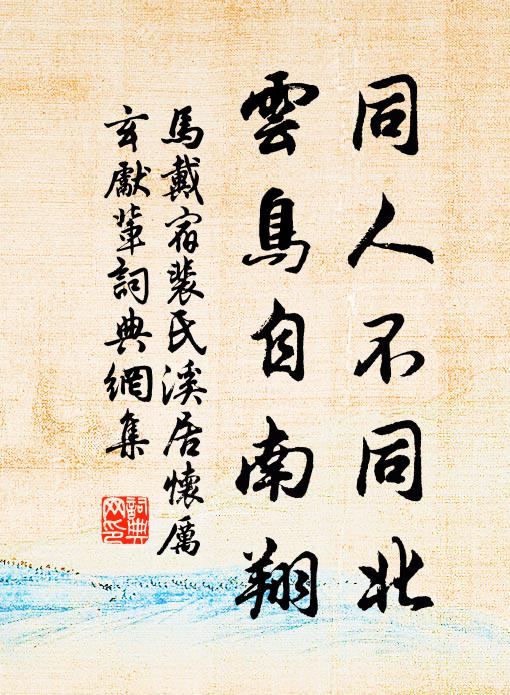 同人不同北
雲鳥自南翔
馬戴宿裴氏溪居懷厲
玄獻輩詞典網集
詞典
网印